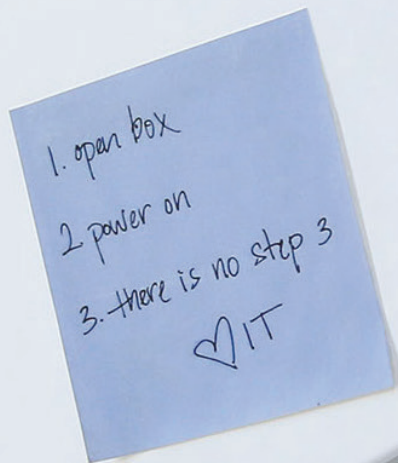 1. open box
2 power on
3. there is no step 3
♡ IT